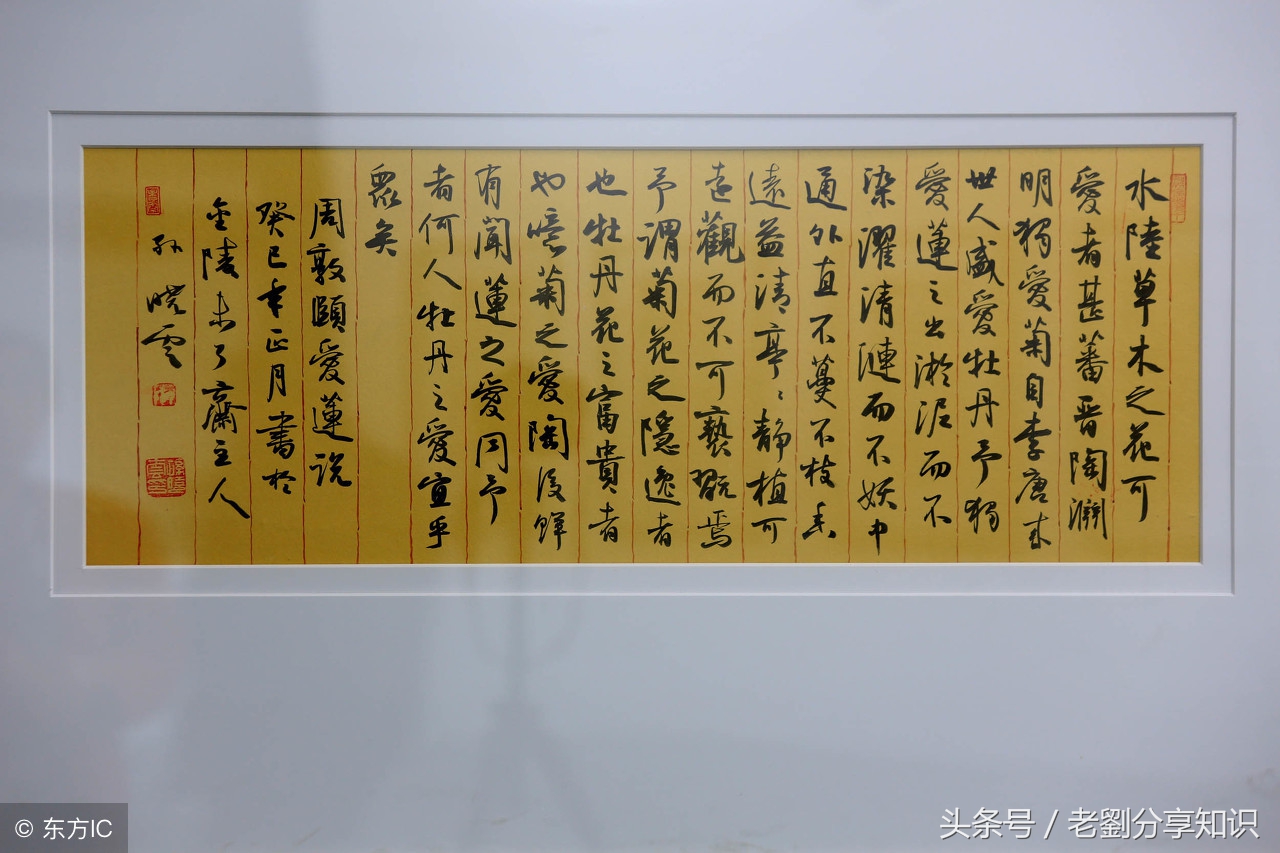 水陸草木之花可
愛者甚蕃晋陶渊
明獨愛菊自李唐来
世人盛愛牡丹予獨
愛蓮之出淤泥而不
染濯清漣而不妖中
通外直不蔓不枝香
遠益清亭〻静植可
遠觀而不可褻翫焉
予謂菊花之隱逸者
也牡丹花之富貴者
也噫菊之愛陶後鲜
有聞蓮之愛同予
者何人牡丹之愛宜乎
眾矣
周敦頤愛蓮说
癸巳年正月書於
金陵未了齋主人
孙晓雲
© 东方IC
头条号 / 老劉分享知识